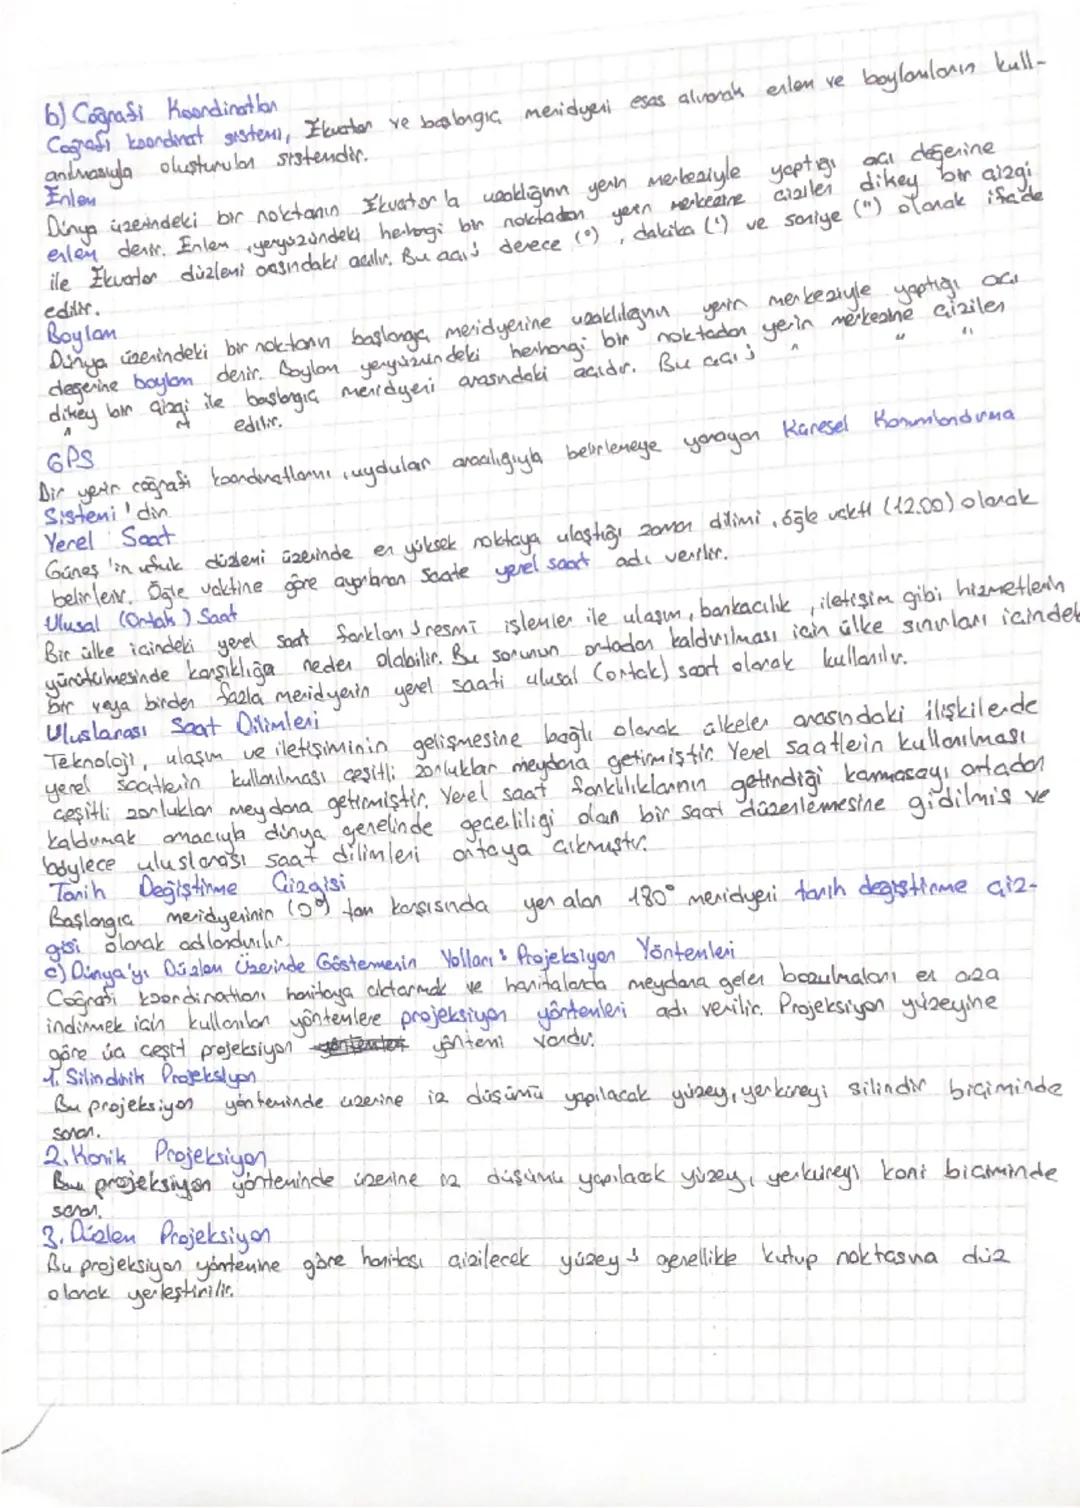 b) Coğrafi Koordinatlar
Coğrafi koordinat sistemi, Ekvator ve başlangıç meridyeni esas alınarak enlem ve boylamların kull-
anılmasıyla oluşturulan sistemdir.
Enlem
Dünya üzerindeki bir noktanın Ekvator'a uzaklığının yerin merkeziyle yaptığı açı değerine
enlem denir. Enlem, yeryüzündeki herhangi bir noktadan yerin merkezine çizilen dikey bir çizgi
ile Ekvator düzlemi arasındaki açıdır. Bu açı; derece (°), dakika (') ve saniye (") olarak ifade
edilir.
Boylam
Dünya üzerindeki bir noktanın başlangıç meridyenine uzaklılığının yerin merkeziyle yaptığı açı
değerine boylam denir. Boylam yeryüzündeki herhangi bir noktadan yerin merkezine çizilen
dikey bir çizgi ile başlangıç meridyeni arasındaki açıdır. Bu açı; " " "
" " edilir.
GPS
Bir yerin coğrafi koordinatlarını, uydular aracılığıyla belirlemeye yarayan Küresel Konumlandırma
Sistemi'dir.
Yerel Saat
Güneş'in ufuk düzlemi üzerinde en yüksek noktaya ulaştığı zaman dilimi, öğle vakti (12.00) olarak
belirlenir. Öğle vaktine göre ayarlanan saate yerel saat adı verilir.
Ulusal (Ortak) Saat
Bir ülke içindeki yerel saat farkları; resmî işlemler ile ulaşım, bankacılık, iletişim gibi hizmetlerin
yürütülmesinde karışıklığa neden olabilir. Bu sorunun ortadan kaldırılması için ülke sınırları içindek
bir veya birden fazla meridyenin yerel saati ulusal (ortak) saat olarak kullanılır.
Uluslarası Saat Dilimleri
Teknoloji, ulaşım ve iletişiminin gelişmesine bağlı olarak ülkeler arasındaki ilişkilerde
yerel saatlerin kullanılması çeşitli zorluklar meydana getirmiştir. Yerel saatlerin kullanılması
çeşitli zorluklar meydana getirmiştir. Yerel saat farklılıklarının getirdiği karmaşayı ortadan
kaldırmak amacıyla dünya genelinde geçerliliği olan bir saat düzenlemesine gidilmiş ve
böylece uluslarası saat dilimleri ortaya çıkmıştır.
Tarih Değiştirme Çizgisi
Başlangıç meridyeninin (0°) tam karşısında yer alan 180° meridyeni tarih değiştirme çiz-
gisi olarak adlandırılır.
c) Dünya'yı Düzlem Üzerinde Göstermenin Yolları: Projeksiyon Yöntemleri
Coğrafi koordinatları haritaya aktarmak ve haritalarda meydana gelen bozulmaları en aza
indirmek için kullanılan yöntemlere projeksiyon yöntemleri adı verilir. Projeksiyon yüzeyine
göre üç çeşit projeksiyon yöntemi vardır.
1. Silindirik Projeksiyon
Bu projeksiyon yönteminde üzerine iz düşümü yapılacak yüzey, yerküreyi silindir biçiminde
sarar.
2. Konik Projeksiyon
Bu projeksiyon yönteminde üzerine iz düşümü yapılacak yüzey, yerküreyi koni biçiminde
sarar.
3. Düzlem Projeksiyon
Bu projeksiyon yöntemine göre haritası çizilecek yüzey; genellikle kutup noktasına düz
olarak yerleştirilir.